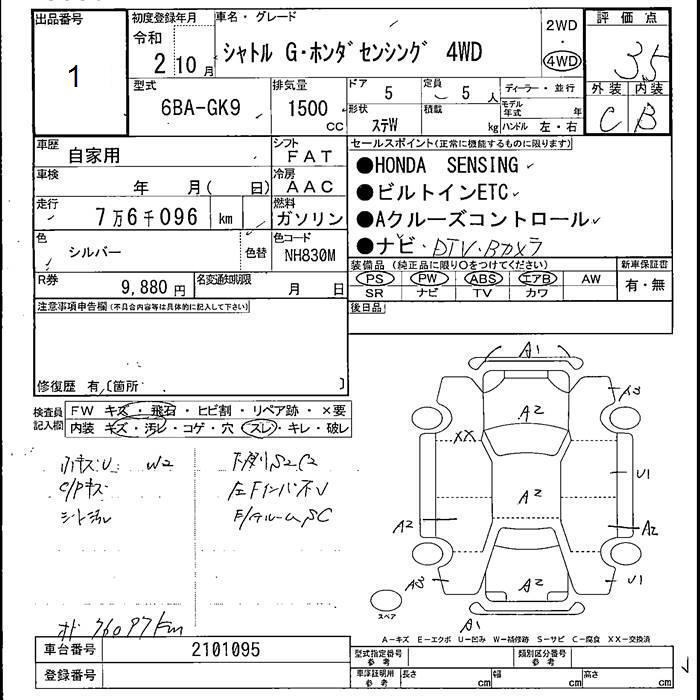 出品番号
1
初度登録年月
令和
2 10 月
車名・グレード
シャトル G・ホンダセンシング 4WD
2WD
・
4WD
評価点
3.5
外装 内装
C B
型式
6BA-GK9
排気量
1500 cc
ドア
5
定員
5 人
ディーラー・並行
形状
ステW
積載
kg
モデル年式
年
ハンドル 左・右
車歴
自家用
シフト
FAT
車検
年 月( 日)
冷房
AAC
走行
7万6千096 km
燃料
ガソリン
色
シルバー
色替
色コード
NH830M
R券
9,880 円
名変通知期限
月 日
セールスポイント(正常に機能するものに限ります)
●HONDA SENSING
●ビルトインETC
●Aクルーズコントロール
●ナビ・DTV・Bカメラ
装備品 (純正品に限り○をつけてください)
PS PW ABS エアB AW
SR ナビ TV カワ
新車保証書
有・無
後日品
注意事項申告欄(不具合内容等は具体的に記入して下さい)
修復歴 有.〔箇所 〕
検査員記入欄
FW キズ・飛石・ヒビ割・リペア跡・×要
内装 キズ・汚レ・コゲ・穴・スレ・キレ・破レ
W2
下廻りS2C2
C/Pキズ
左FインパネU
A1
A2
A3
XX
A2
U1
A2
A2
A3
A2
U1
A1
スペア
A-キズ E-エクボ U-凹み W-補修跡 S-サビ C-腐食 XX-交換済
76097km
車台番号
2101095
登録番号
型式指定番号
参考
類別区分番号
参考
車庫証明用
参考
長さ cm
幅 cm
高さ cm